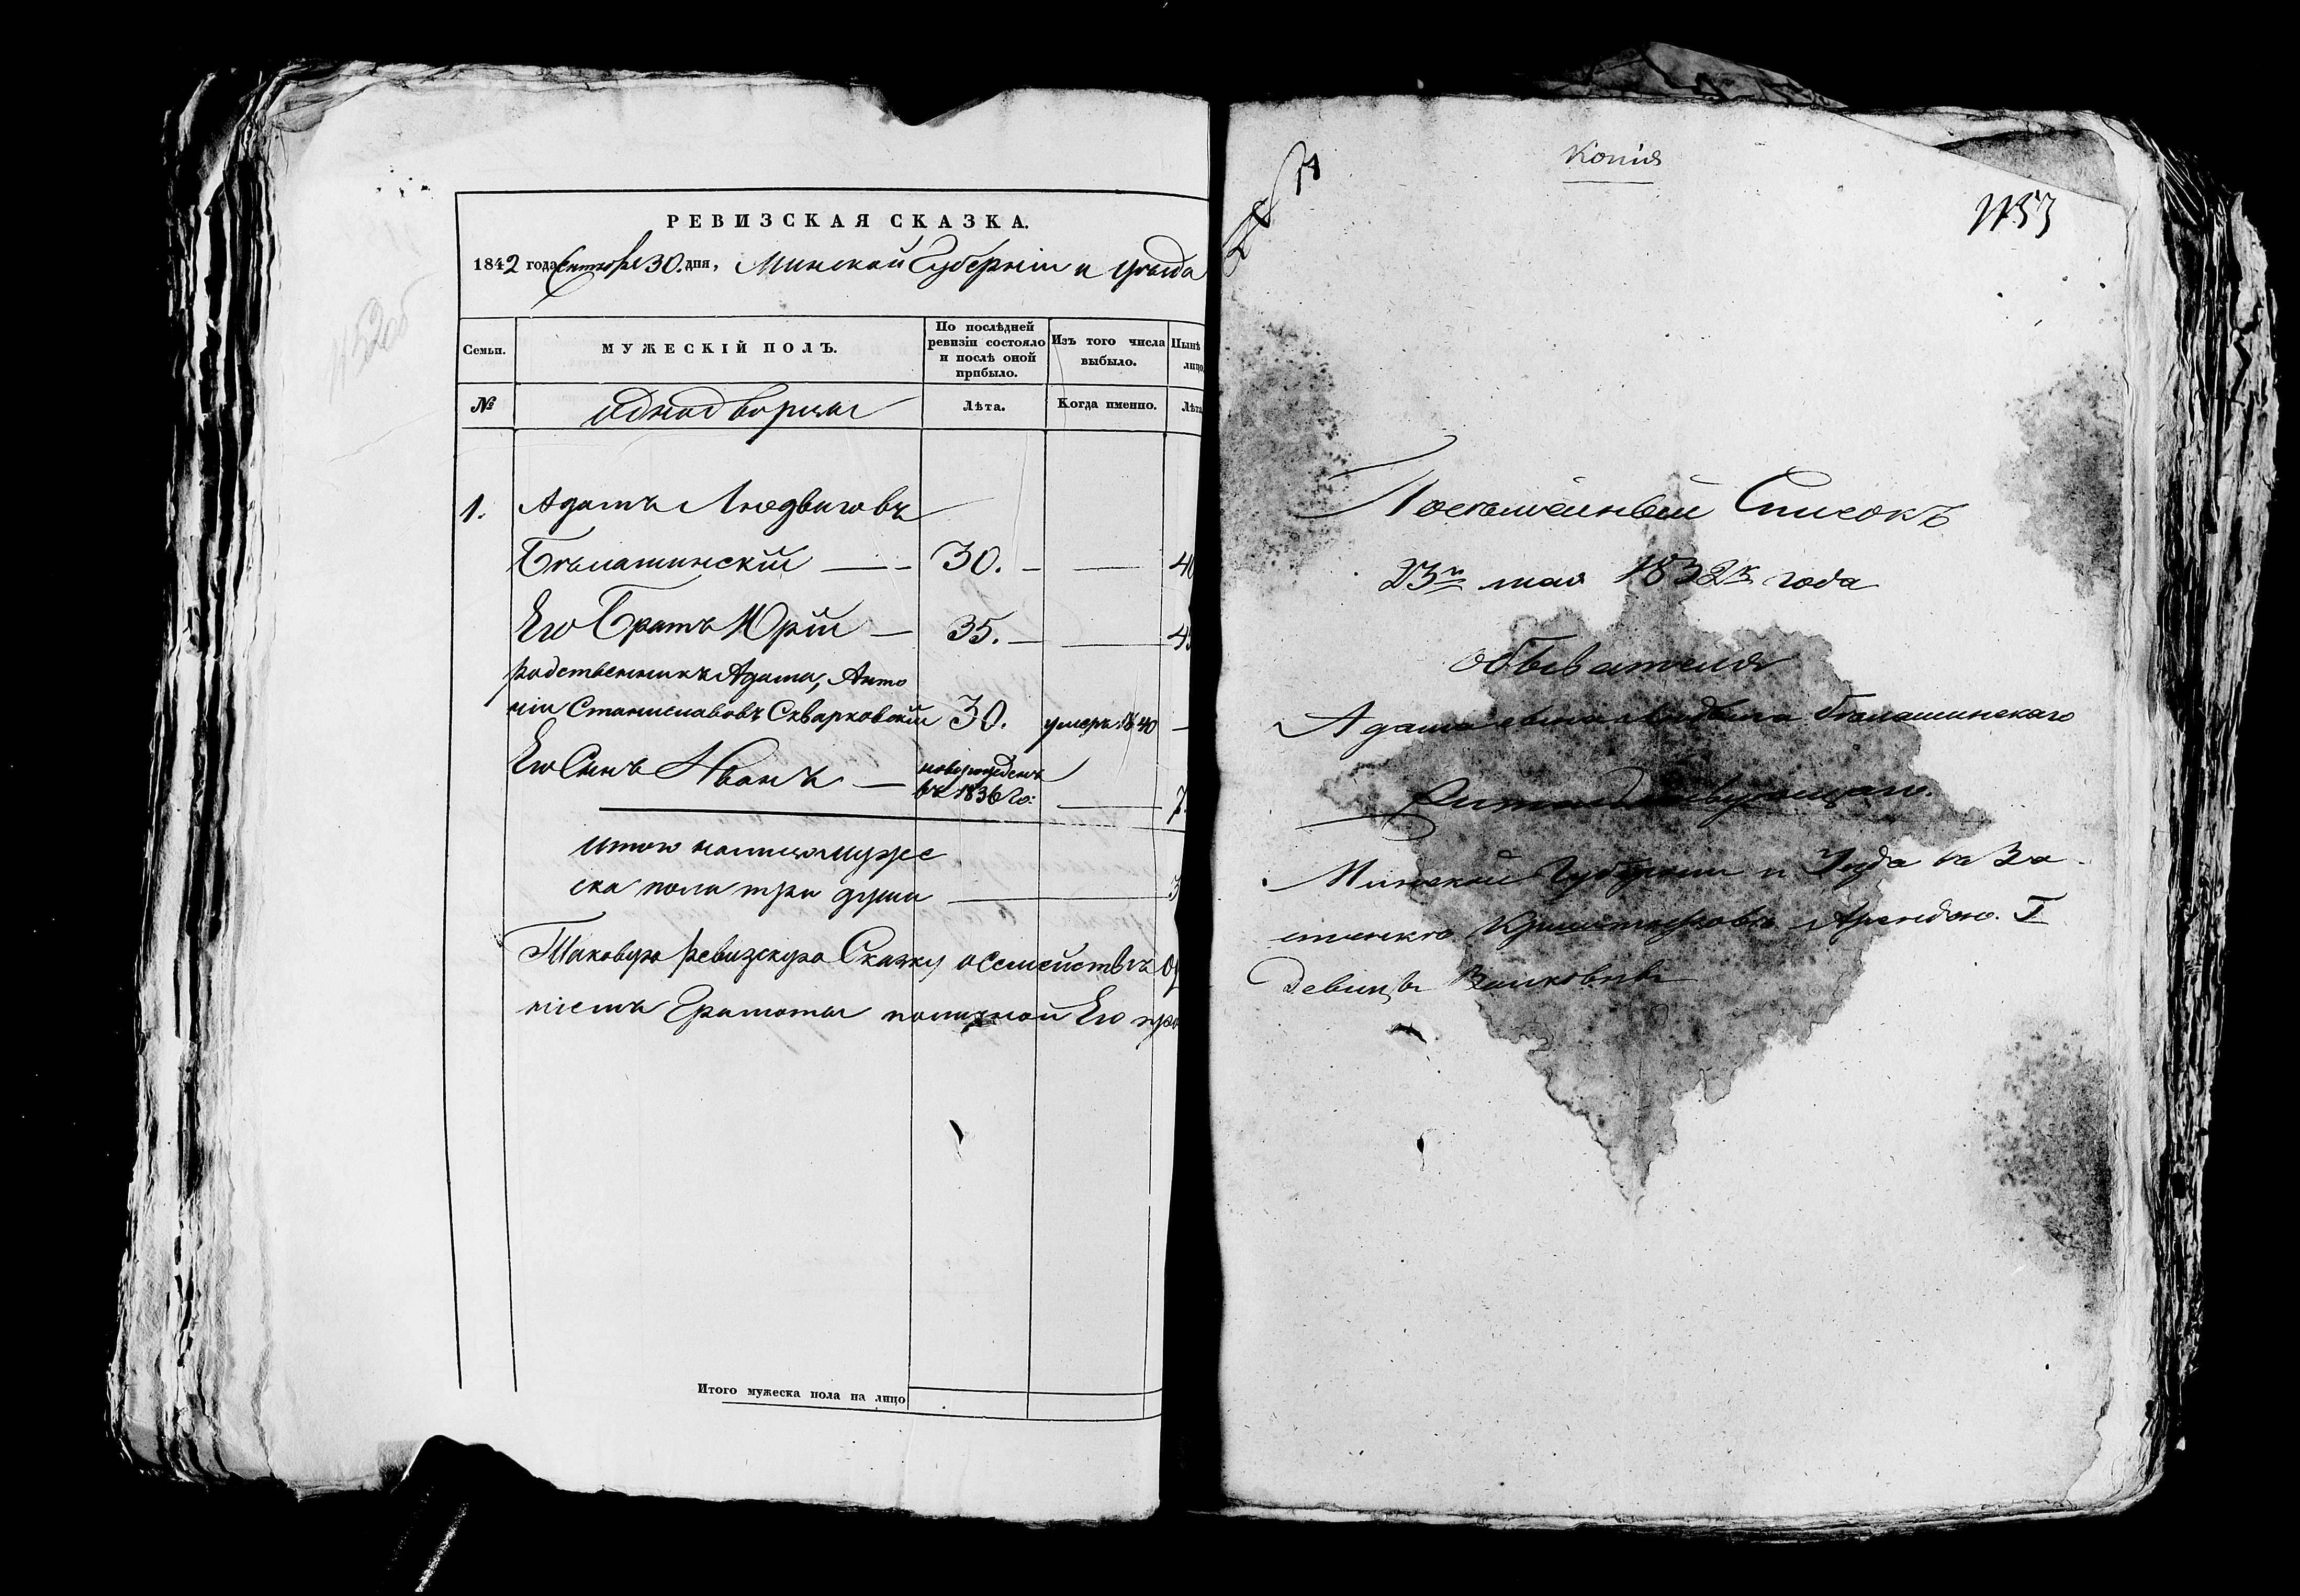 РЕВИЗСКАЯ СКАЗКА.
1842 года Октября 30. дня, Минской Губерніи и уѣзда
Семьи.
МУЖЕСКІЙ ПОЛЪ.
По послѣдней ревизіи состояло и послѣ оной прибыло.
Изъ того числа выбыло.
Нынѣ лицо
№
однодворцы
Лѣта.
Когда именно.
Лѣта
1. Адамъ Людвиговъ
Бѣлашинскій — 30. — — 40
Его Братъ Юрій — 35. — — 45
родственникъ Адама, Анто
ній Станиславовъ Скварковскій 30. умеръ 1840 —
Его Сынъ Иванъ — новорожденъ въ 1836 го: — 7.
Итого налицо мужес
ка пола три души — 3
Таковую ревизскую Сказку о семействѣ
ніемъ Грамоты по личной Его
Итого мужеска пола на лицо
1152об
Копія
1153
Посемейный Списокъ
23го мая 1832го года
обывателя
Адама сына Людвига Бѣлашинскаго
Минской Губерніи и
Девицы